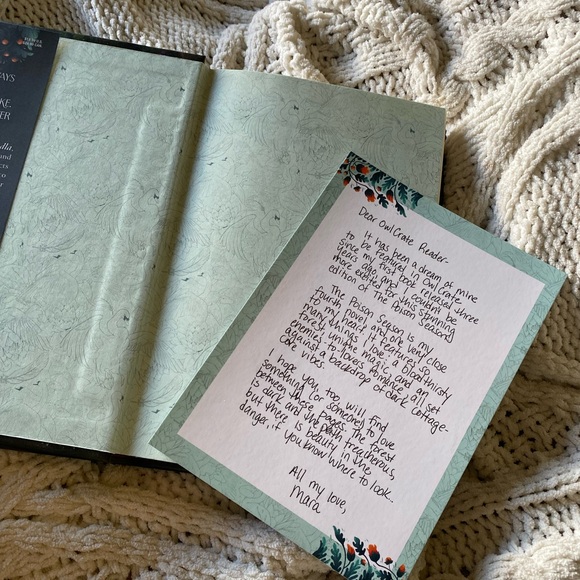 AYS
KE.
ER
lla,
and
Dear OwlCrate Reader-
It has been a dream of mine
to be featured in OwlCrate
since my first book released three
years ago, and I couldn't be
more excited for this stunning
edition of The Poison Season!
The Poison Season is my
fourth novel and one very close
to my heart. It features so
many things I love: a bloodthirsty
forest, unique magic, and an
enemies to lovers romance all set
against a backdrop of dark cottage-
core vibes.
I hope you, too, will find
something (or someone) to love
between these pages. The forest
is dark and the path treacherous,
but there is beauty in the
danger, if you know where to look...
All my love,
Mara